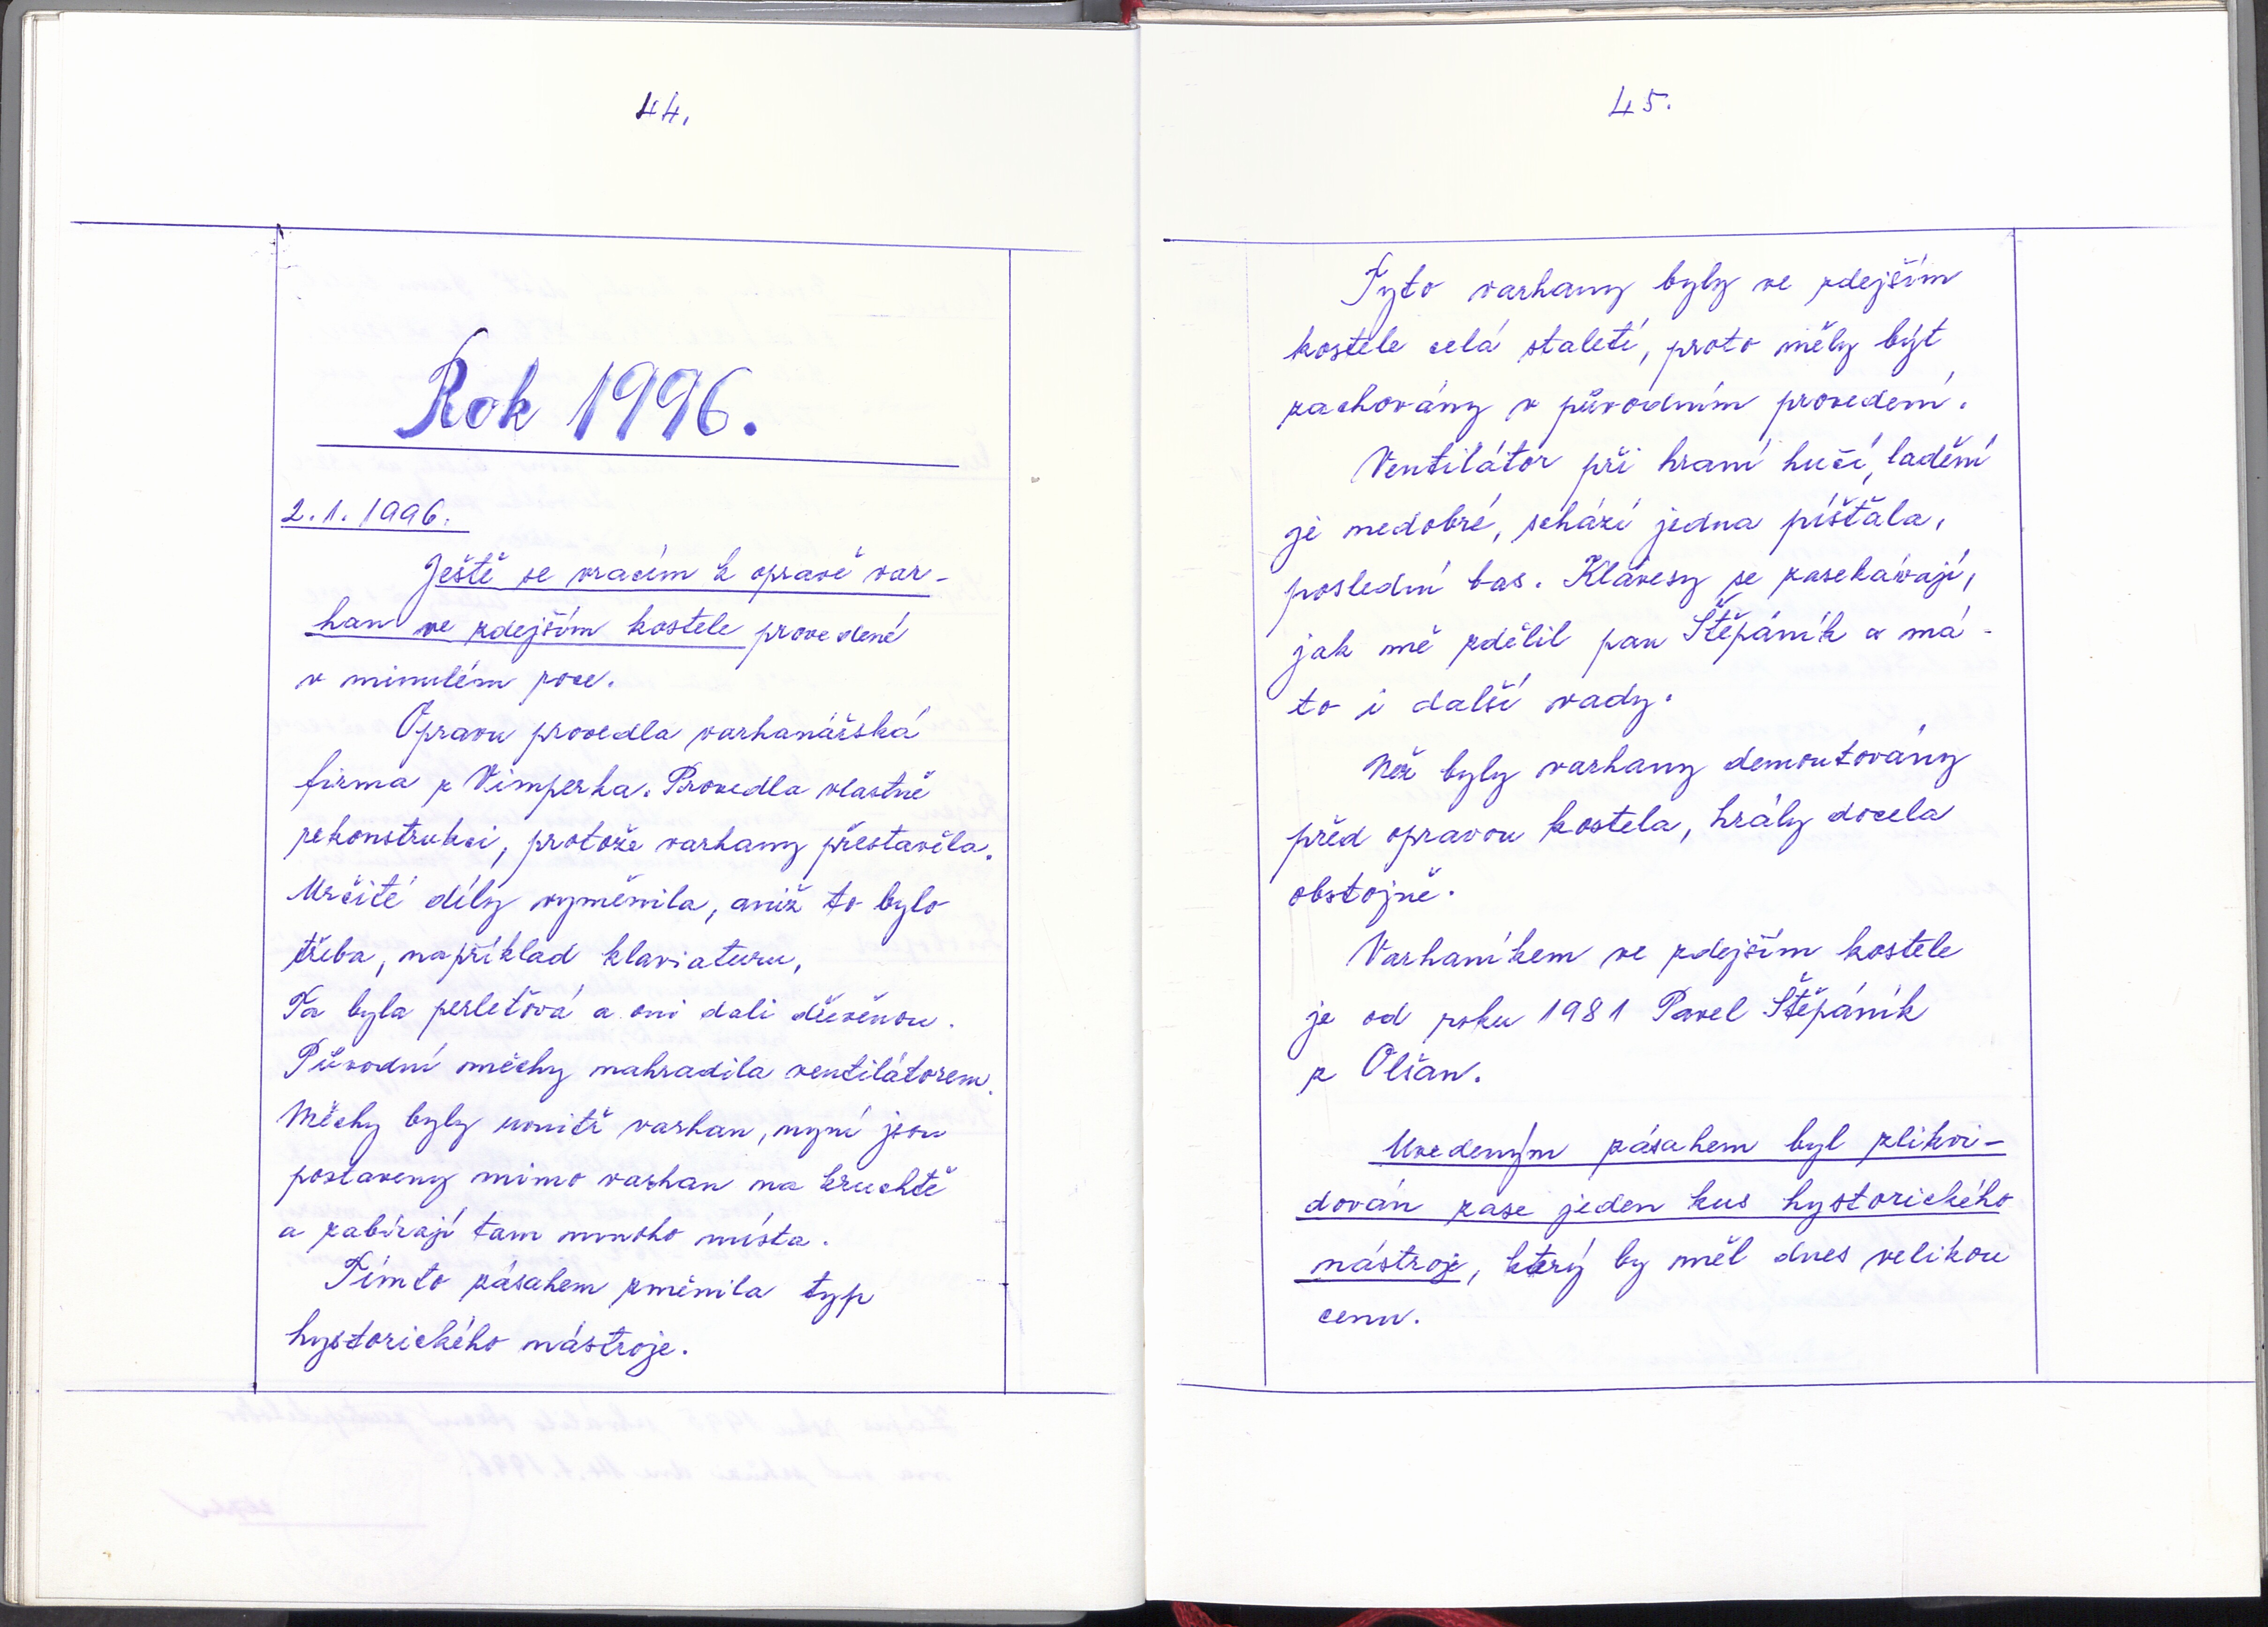 44.
Rok 1996.
2.1.1996.
Ještě se vracím k opravě var-
han ve zdejším kostele provedené
v minulém roce.
Opravu provedla varhanářská
firma z Vimperka. Provedla vlastně
rekonstrukci, protože varhany přestavěla.
Určité díly vyměnila, aniž to bylo
třeba, například klaviaturu,
Ta byla perleťová a oni dali dřevěnou.
Původní měchy nahradila ventilátorem.
Měchy byly uvnitř varhan, nyní jsou
postaveny mimo varhan na kruchtě
a zabírají tam mnoho místa.
Tímto zásahem změnila typ
hystorického nástroje.
45.
Tyto varhany byly ve zdejším
kostele celá staletí, proto měly být
zachovány v původním provedení.
Ventilátor při hraní hučí, ladění
je nedobré, schází jedna píšťala,
poslední bas. Klávesy se zasekávají,
jak mě zdělil pan Štěpáník a má-
to i další vady.
Než byly varhany demontovány
před opravou kostela, hrály docela
obstojně.
Varhaníkem ve zdejším kostele
je od roku 1981 Pavel Štěpáník
z Olšan.
Uvedeným zásahem byl zlikvi-
dován zase jeden kus hystorického
nástroje, který by měl dnes velikou
cenu.